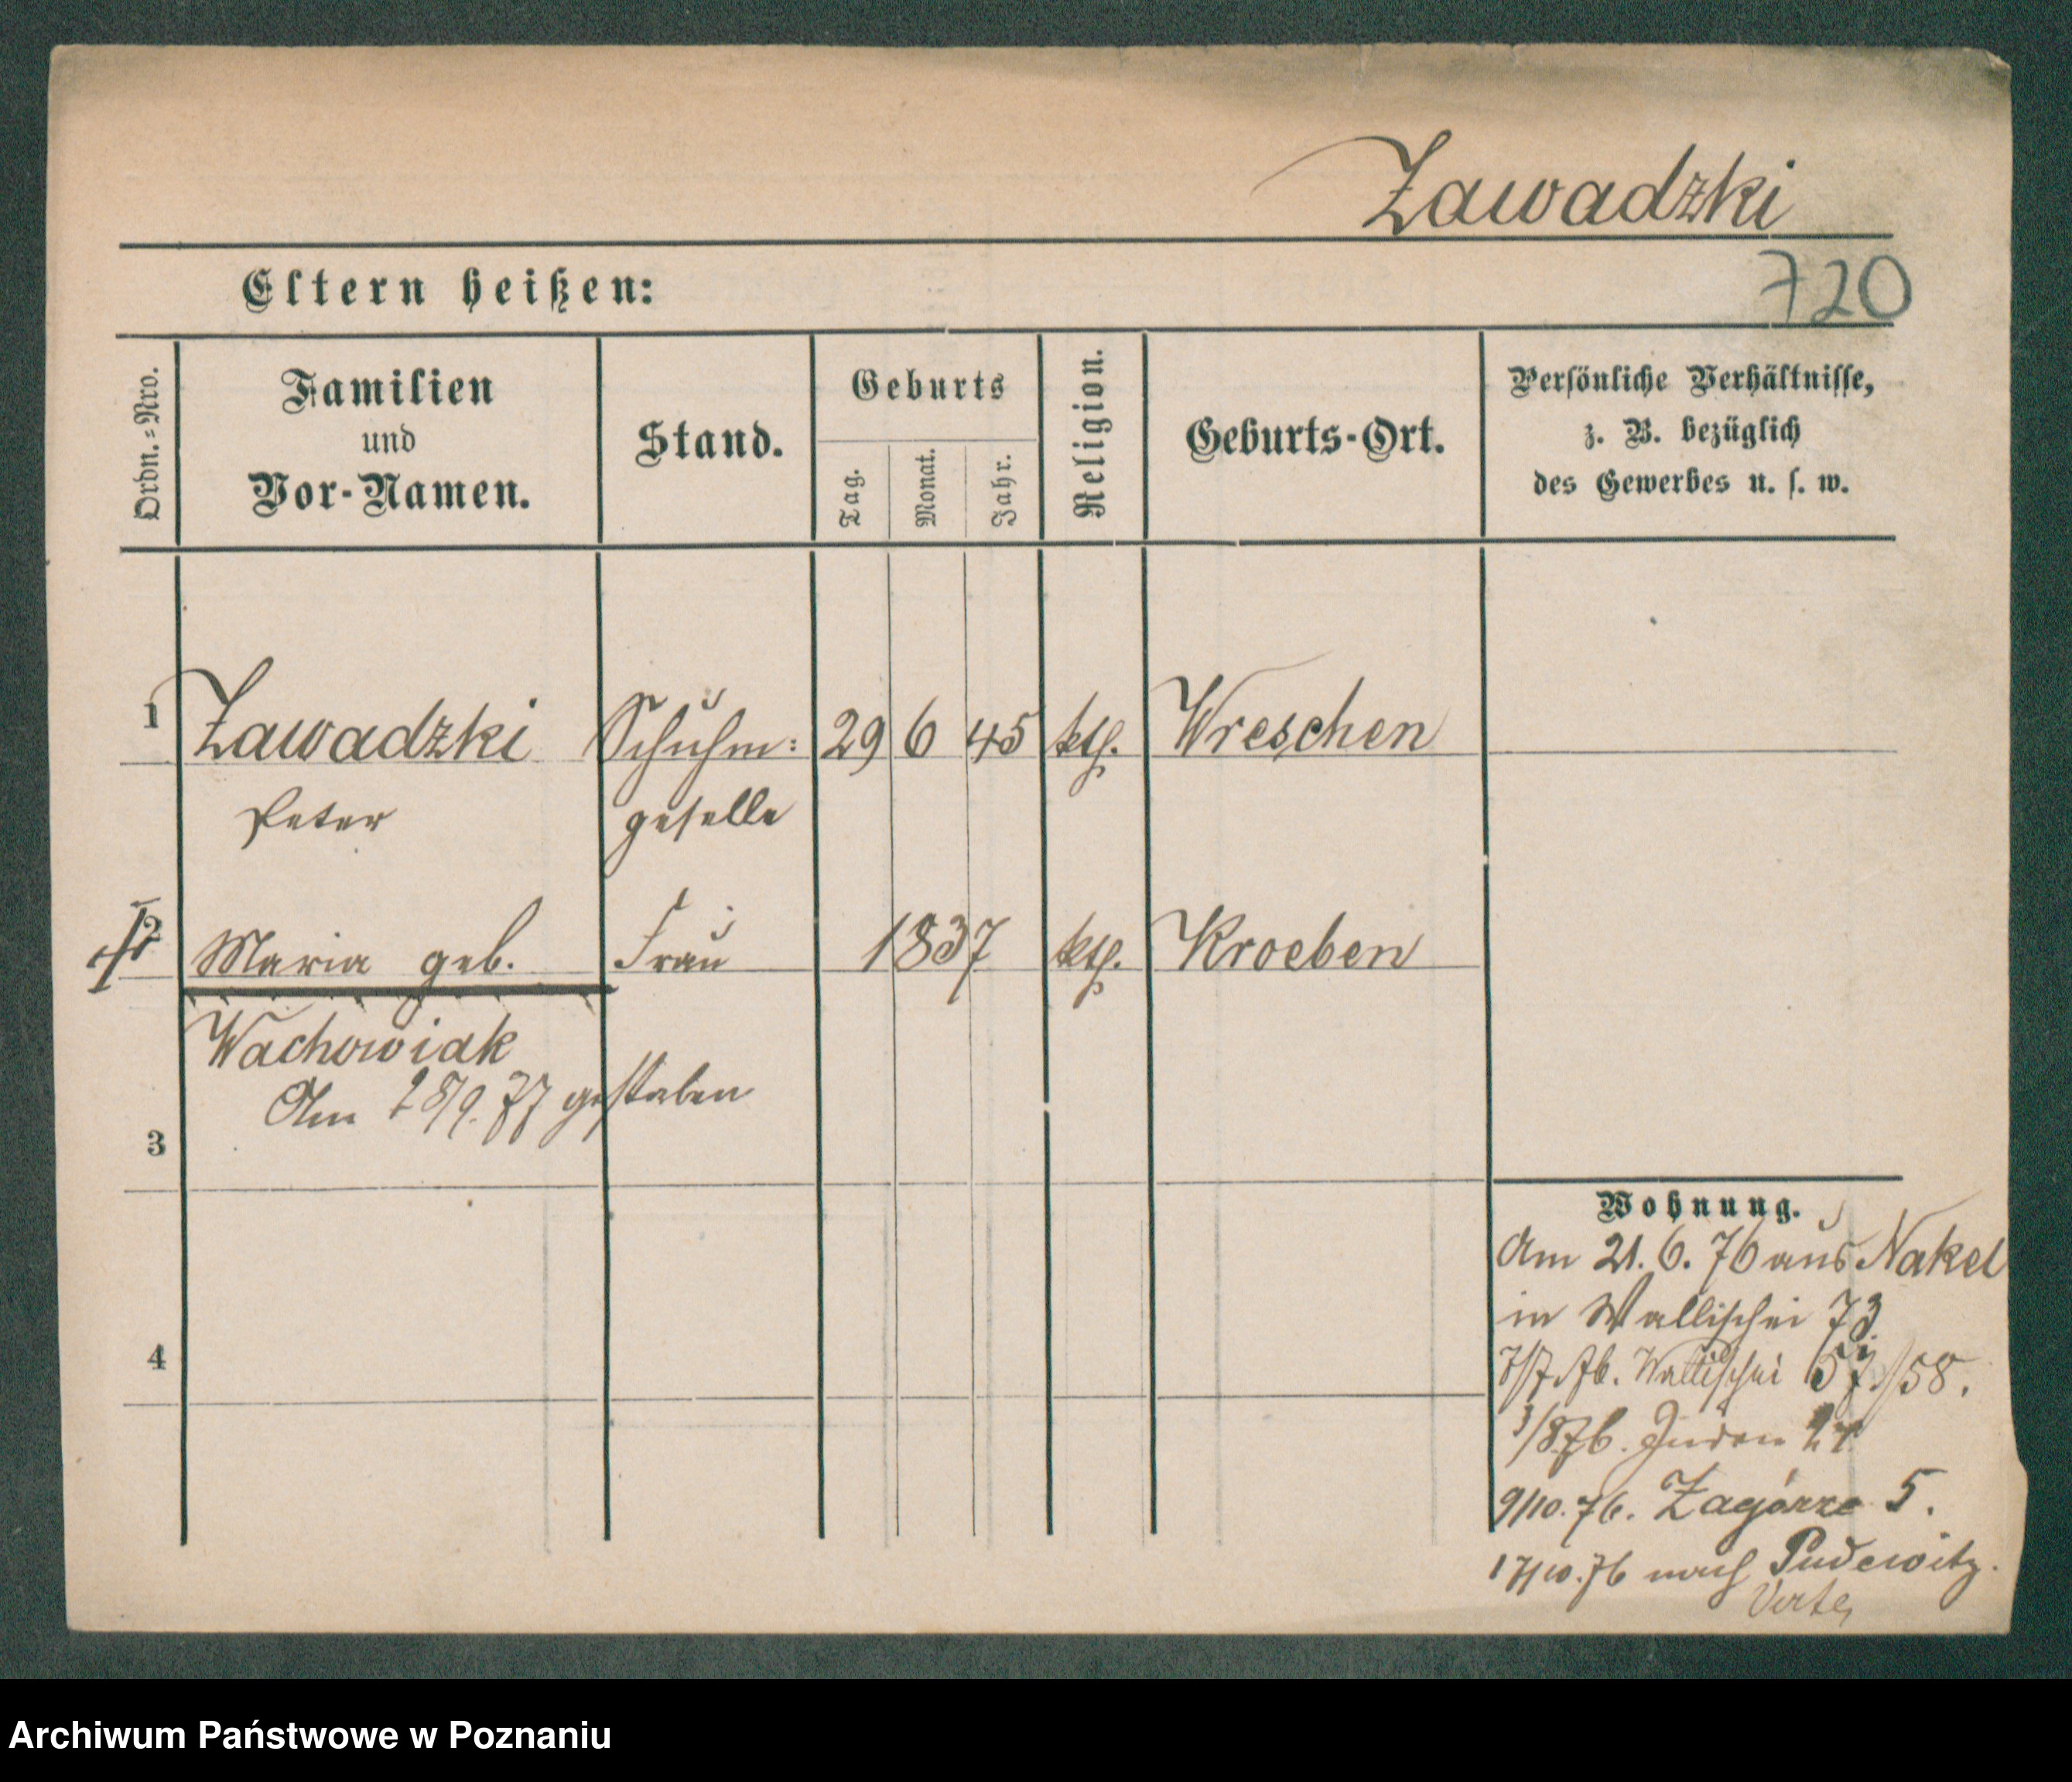 Zawadzki
Eltern heißen:
720
Ordn.=Nro.
Familien
und
Vor-Namen.
Stand.
Geburts
Tag.
Monat.
Jahr.
Religion.
Geburts-Ort.
Persönliche Verhältnisse,
z. B. bezüglich
des Gewerbes u. s. w.
1 Zawadzki Schuhm: 29 6 45 kth. Wreschen
Peter geselle
2 Maria geb. Frau 1837 kth. Kroeben
Wachowiak
Am 28/9. 77 gestorben
3
4
Wohnung.
Am 21. 6. 76 aus Nakel
in Wallischei 73.
7/7. 76. Wallischei 57/58.
3/8 76. Juden
9/10. 76. Zagórze 5.
17/10. 76 nach Pudewitz.
Verte
Archiwum Państwowe w Poznaniu